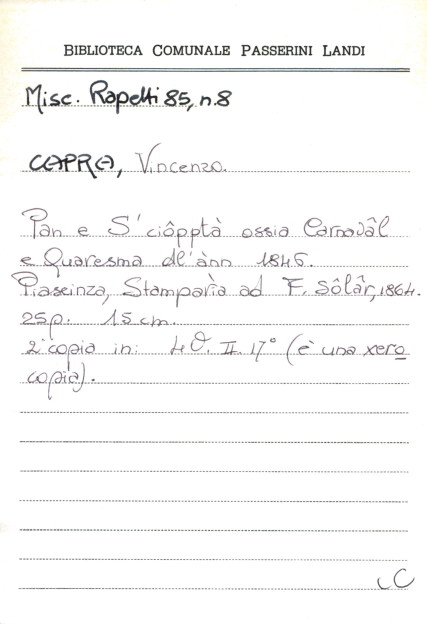 BIBLIOTECA COMUNALE PASSERINI LANDI
Misc. Rapetti 85, n.8
CAPRA, Vincenzo.
Pan e S'ciôpptà ossia Carnavâl
e Quaresma dl'ànn 1846.
Piaseinza, Stamparìa ad F. Sôlâr, 1864.
25p. 15 cm.
2ª copia in: 4O. II. 17° (è una xero
copia).